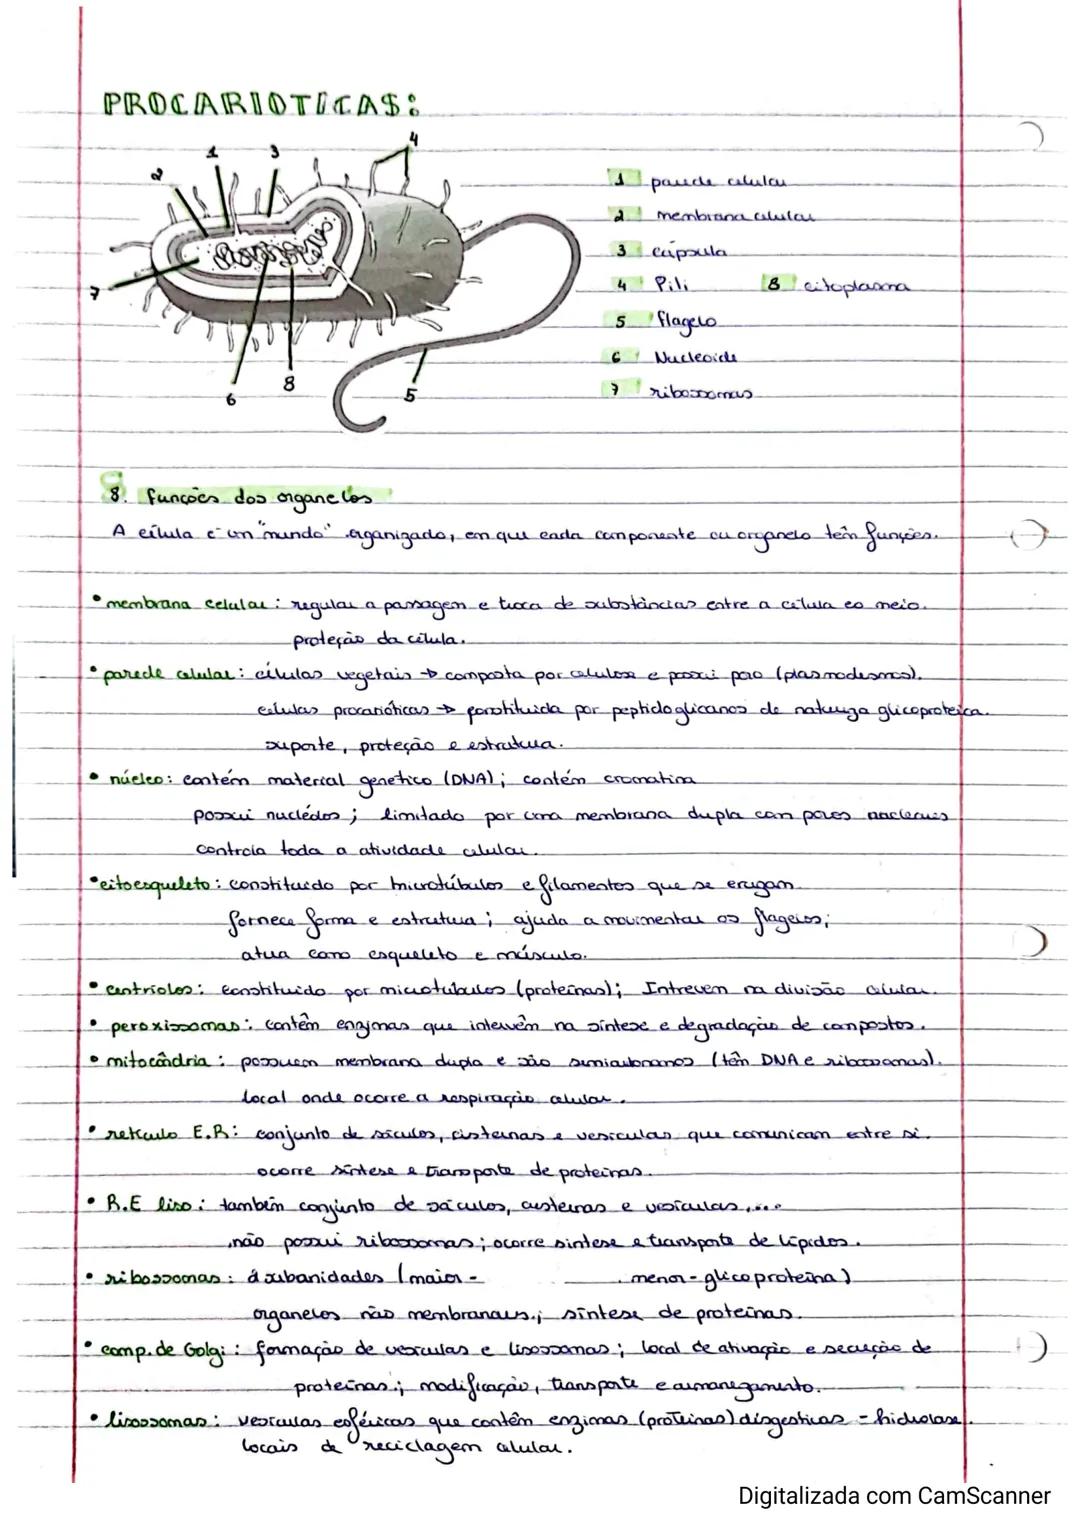 PROCARIOTICAS:
1
3
4
2
7
6
8
5
1 parede celular
2 membrana celular
3 cápsula
4 Pili 8 citoplasma
5 flagelo
6 Nucleoide
7 ribossomas
8. funções dos organelos
A célula é um "mundo" organizado, em que cada componente ou organelo têm funções.
• membrana celular: regular a passagem e troca de substâncias entre a célula e o meio.
proteção da célula.
• parede celular: células vegetais → composta por celulose e possui poro (plasmodesmos).
celulas procarióticas → constituida por peptidoglicanos de natureza glicoproteica.
suporte, proteção e estrutura.
• núcleo: contém material genético (DNA); contém cromatina
possui nucléolos; limitado por uma membrana dupla com poros nucleares
controla toda a atividade celular.
• citoesqueleto: constituido por microtúbulos e filamentos que se
fornece forma e estrutura; ajuda a movimentar os flagelos;
atua como esqueleto e músculo.
• centríolos: constituido por microtubulos (proteínas); Intrevem na divisão celular.
• peroxissomas: contêm enzimas que intervêm na síntese e degradação de compostos.
• mitocôndria: possuem membrana dupla e são semiautonomos (têm DNA e ribossomas).
local onde ocorre a respiração celular.
• retículo E.R: conjunto de sáculos, cisternas e vesículas que comunicam entre si.
ocorre síntese e transporte de proteínas.
• R.E liso: também conjunto de sáculos, cisternas e vesículas,...
não possui ribossomas; ocorre sintese e transporte de lípidos.
• ribossomas: 2 subanidades (maior - menor - glicoproteína)
organelos não membranares; síntese de proteínas.
• comp. de Golgi: formação de vesículas e lisossomas; local de ativação e secreção de
proteínas; modificação, transporte e armanezamento.
• lisossomas: vesículas esféricas que contêm enzimas (proteínas) disgestivas - hidrolase.
locais de reciclagem celular.
Digitalizada com CamScanner